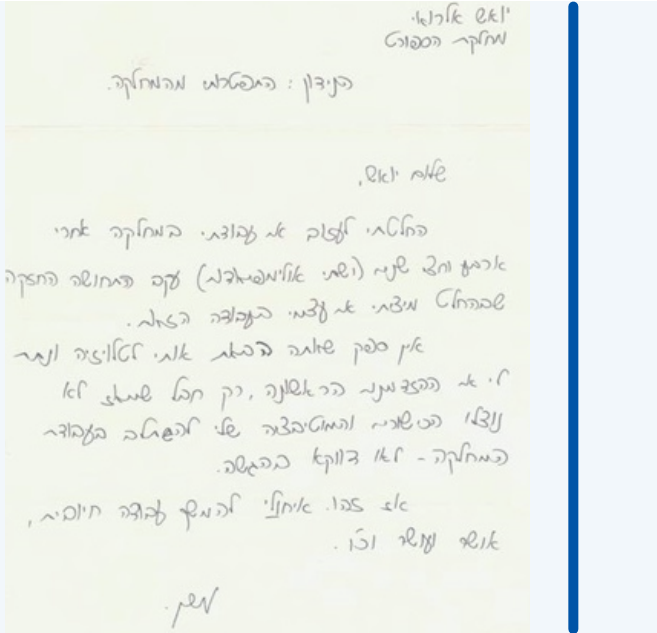 יואש אלרואי
מחלקת הספורט
הנידון: התפטרותי מהמחלקה.
שלום יואש,
החלטתי לעזוב את עבודתי במחלקה אחרי
ארבע וחצי שנים (ושתי אולימפיאדות) עקב התחושה החזקה
שבהחלט מיציתי את עצמי בעבודה הזאת.
אין ספק שאתה הבאת אותי לטלויזיה ונתת
לי את ההזדמנות הראשונה, רק חבל שמאז לא
נוצלו הכישורים והמוטיבציה שלי להשתלב בעבודת
המחלקה - לאו דווקא בהגשה.
אז זהו. איחולי להמשך עבודה חיובית,
אושר ועושר וכו'.